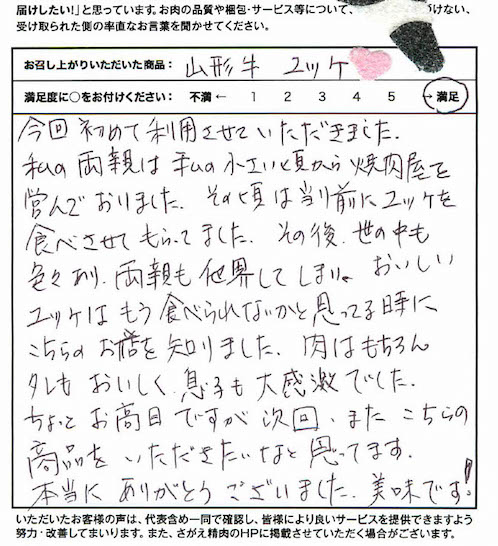 届けしたい!」と思っています。お肉の品質や梱包・サービス等について、 づけない、
受け取られた側の率直なお言葉を聞かせてください。
お召し上がりいただいた商品: 山形牛 ユッケ
満足度に○をお付けください: 不満 ← 1 2 3 4 5 → 満足
今回 初めて利用させていただきました.
私の両親は私の小さい頃から焼肉屋を
営んでおりました. その頃は当り前にユッケを
食べさせてもらってました. その後、世の中も
色々あり、両親も他界してしまい、おいしい
ユッケはもう食べられないかと思ってる時に
こちらのお店を知りました. 肉はもちろん
タレもおいしく、息子も大感激でした.
ちょっとお高目ですが次回、またこちらの
商品をいただきたいなと思ってます.
本当にありがとうございました. 美味です!
いただいたお客様の声は、代表含め一同で確認し、皆様により良いサービスを提供できますよう
努力・改善してまいります。また、さがえ精肉のHPに掲載させていただく場合がございます。